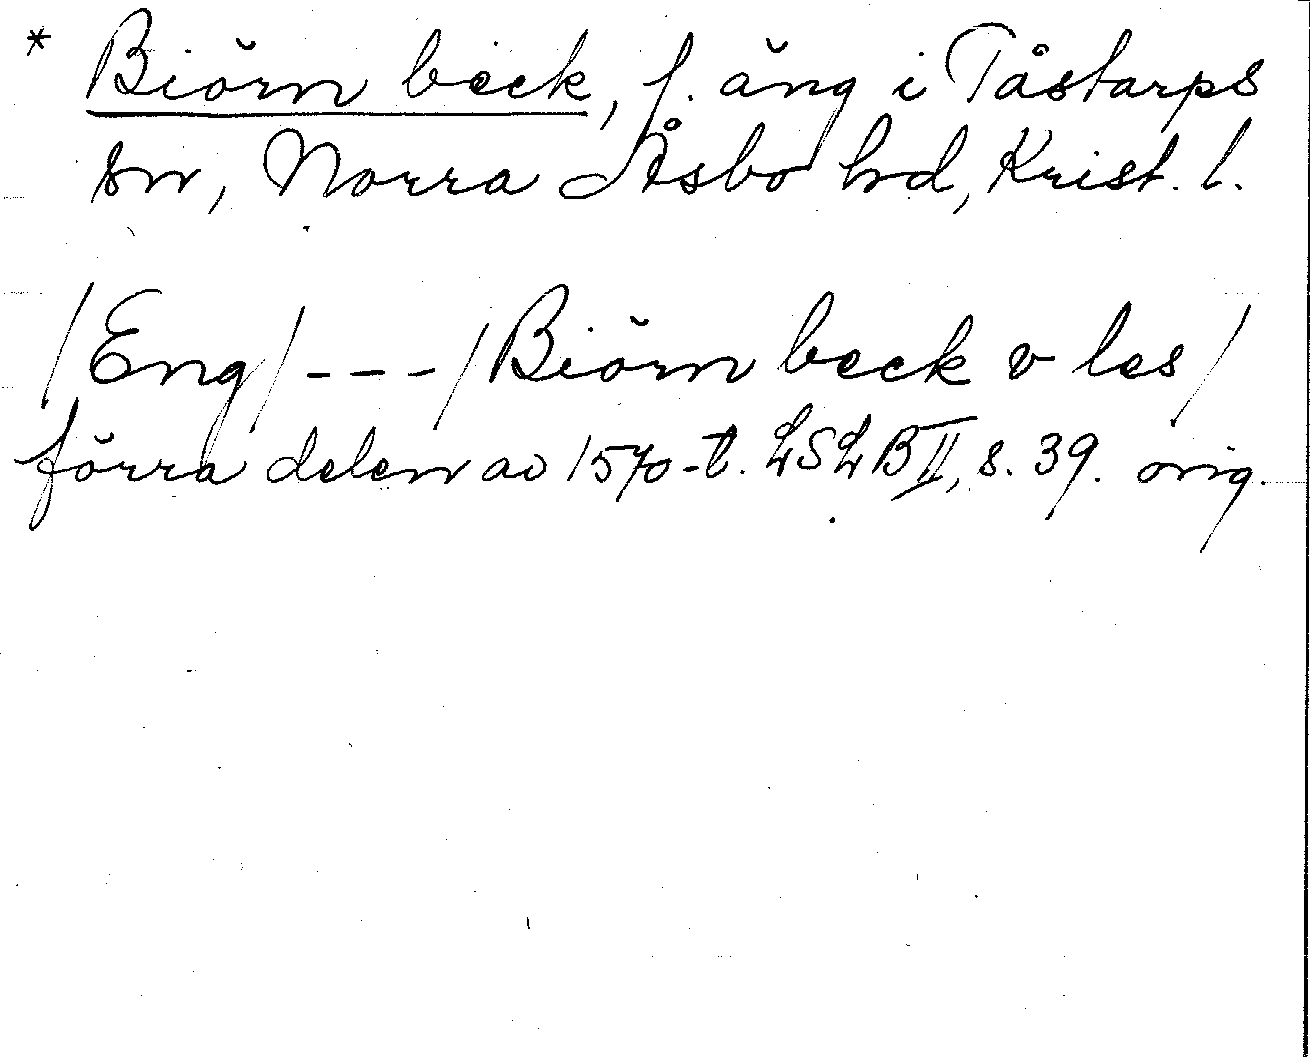 * Biörn beck, f. äng i Tåstarps
sn, Norra Åsbo hd, Krist. l.
/Eng/ --- /Biörn beck v les/
förra delen av 1570-t. LSLB II, s. 39. orig.